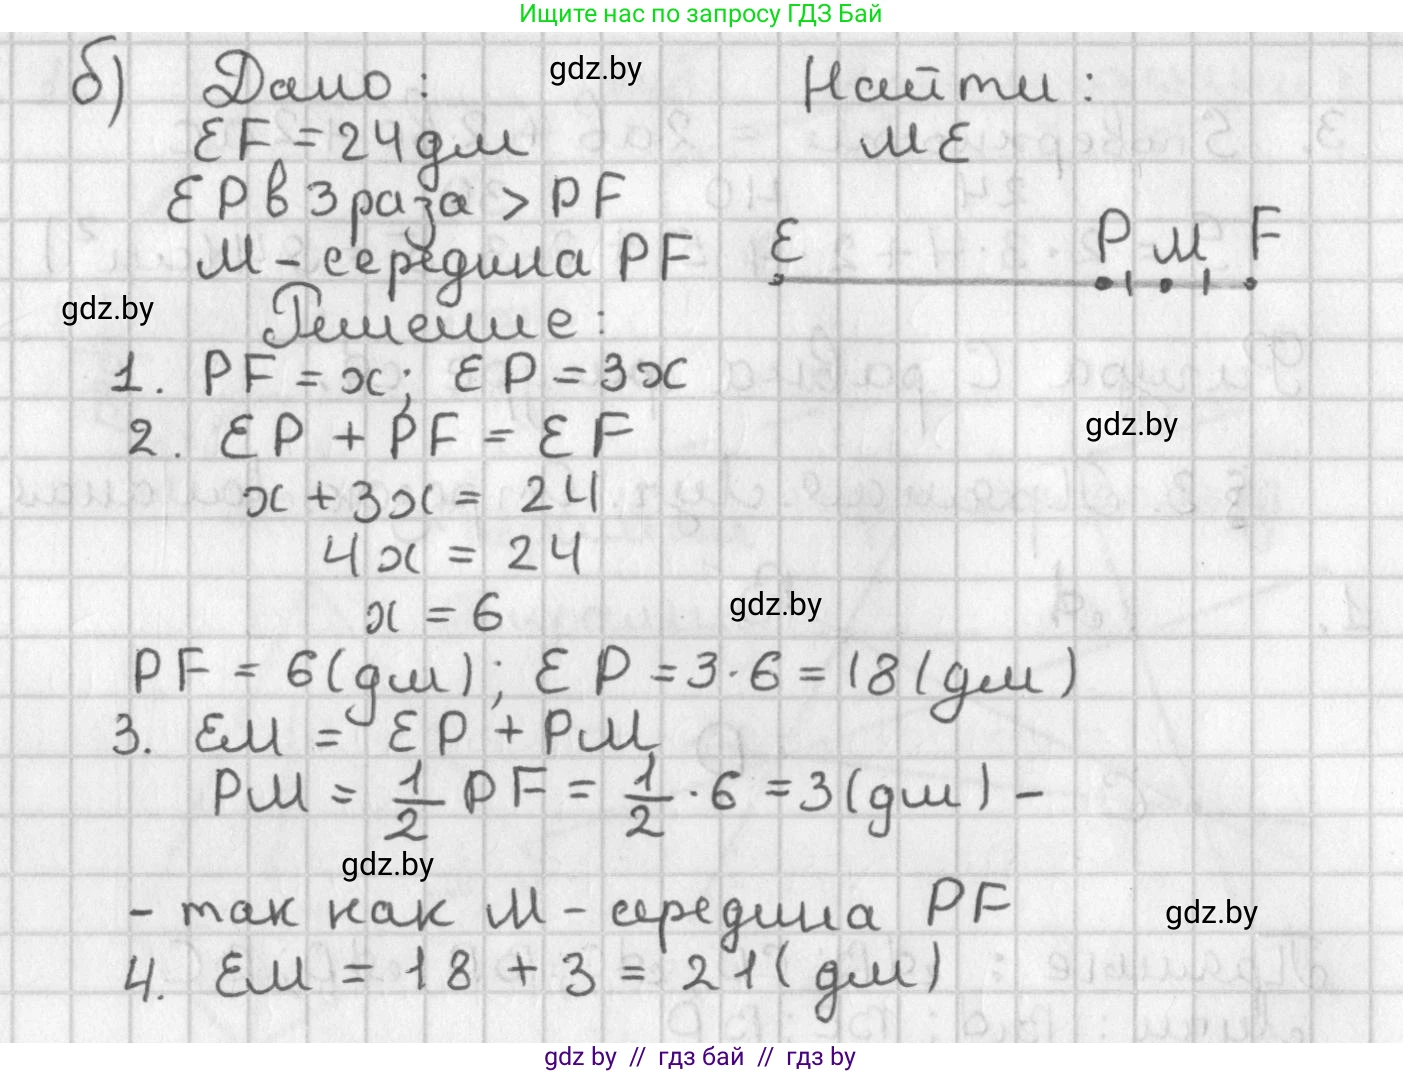 Ищите нас по запросу ГДЗ Бай
б) Дано: gdz.by Найти:
EF = 24 дм ME
EP в 3 раза > PF
M - середина PF E P M F
gdz.by Решение:
1. PF = x; EP = 3x
2. EP + PF = EF gdz.by
x + 3x = 24
4x = 24
x = 6 gdz.by
PF = 6 (дм); EP = 3 · 6 = 18 (дм)
3. EM = EP + PM
PM = 1/2 PF = 1/2 · 6 = 3 (дм) -
gdz.by
- так как M - середина PF gdz.by
4. EM = 18 + 3 = 21 (дм)
gdz by // гдз бай // гдз by